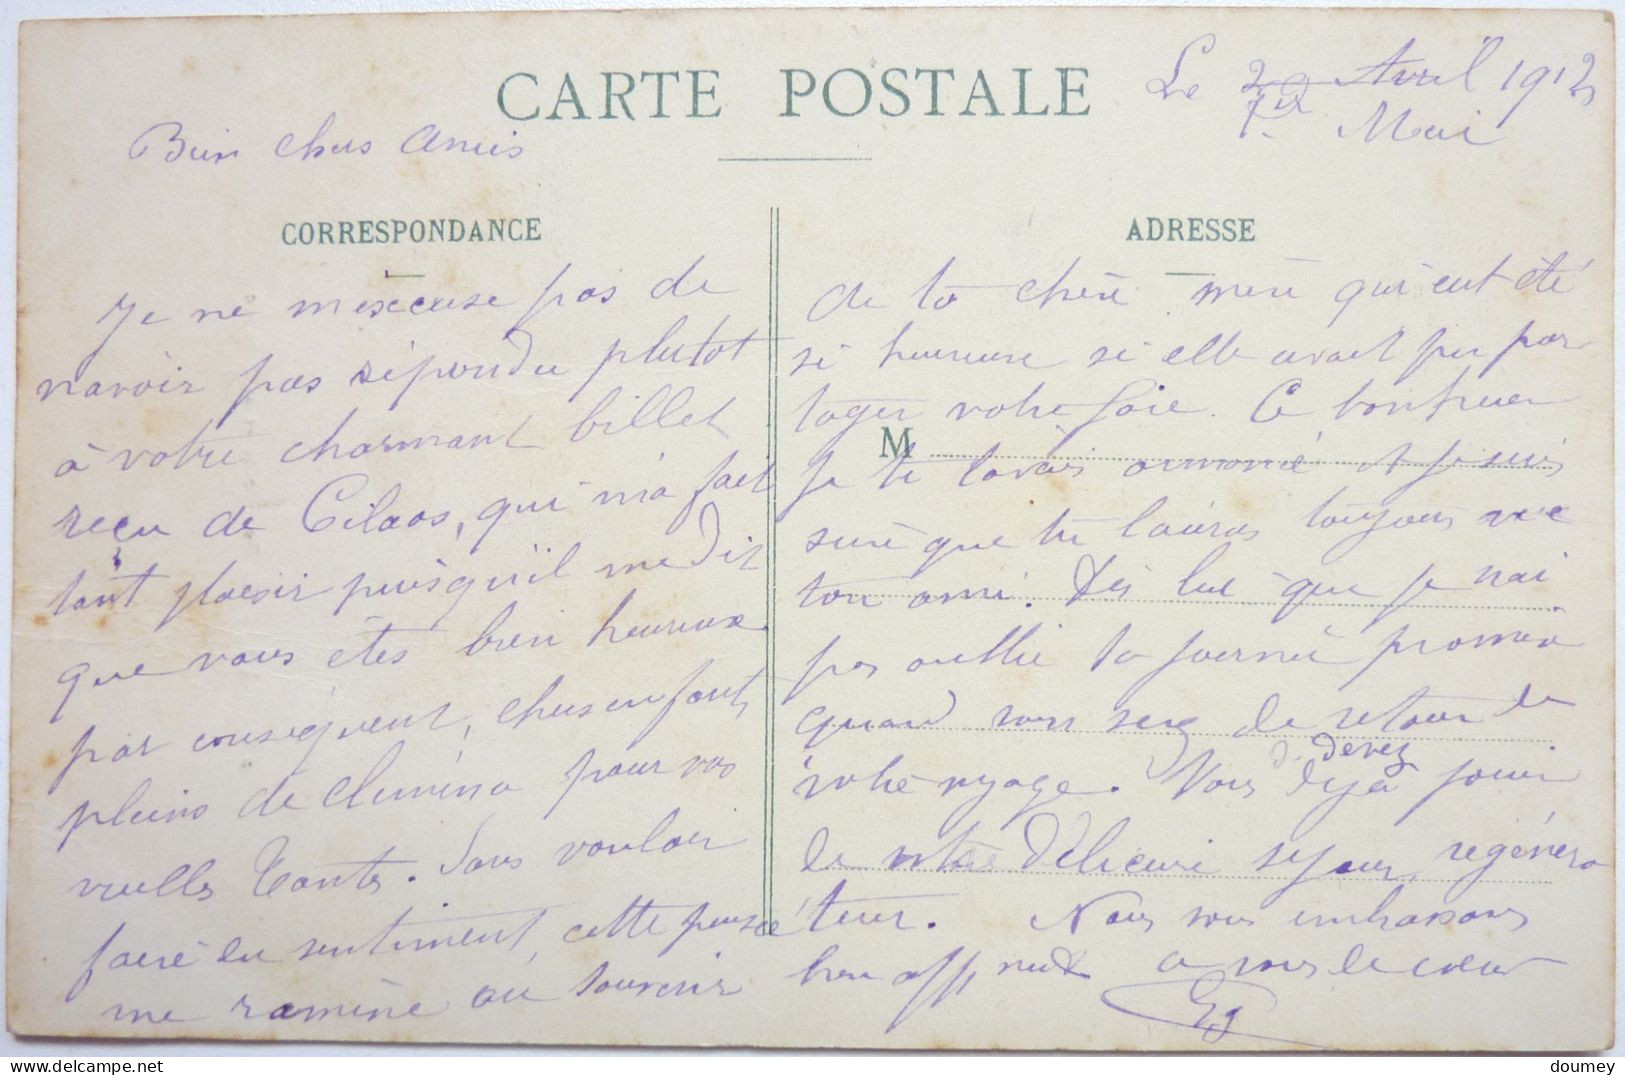 CARTE POSTALE
Le 29 Avril 1912
1er Mai
Bien chers Amis
CORRESPONDANCE
Je ne m'excuse pas de
n'avoir pas répondu plutot
à votre charmant billet
reçu de Cilaos, qui m'a fait
tant plaisir puisqu'il me dit
que vous êtes bien heureux
par conséquent, chers enfants,
pleins de clemence pour vos
vieilles Tantes. Sans vouloir
faire du sentiment, cette pensée
me ramène au souvenir
ADRESSE
M
de ta chère mère qui eut été
si heureuse si elle avait pu par
tager votre joie. Ce bonheur
je te l'avais annoncé et je suis
sure que tu l'auras toujours avec
ton ami. Dis lui que je n'ai
pas oublié la journée promise
quand vous serez de retour de
votre voyage. Vous devez déjà jouir
de votre délicieux séjour, régénéra
teur. Nous vous embrassons
bien affnt à vous de cœur
doumey